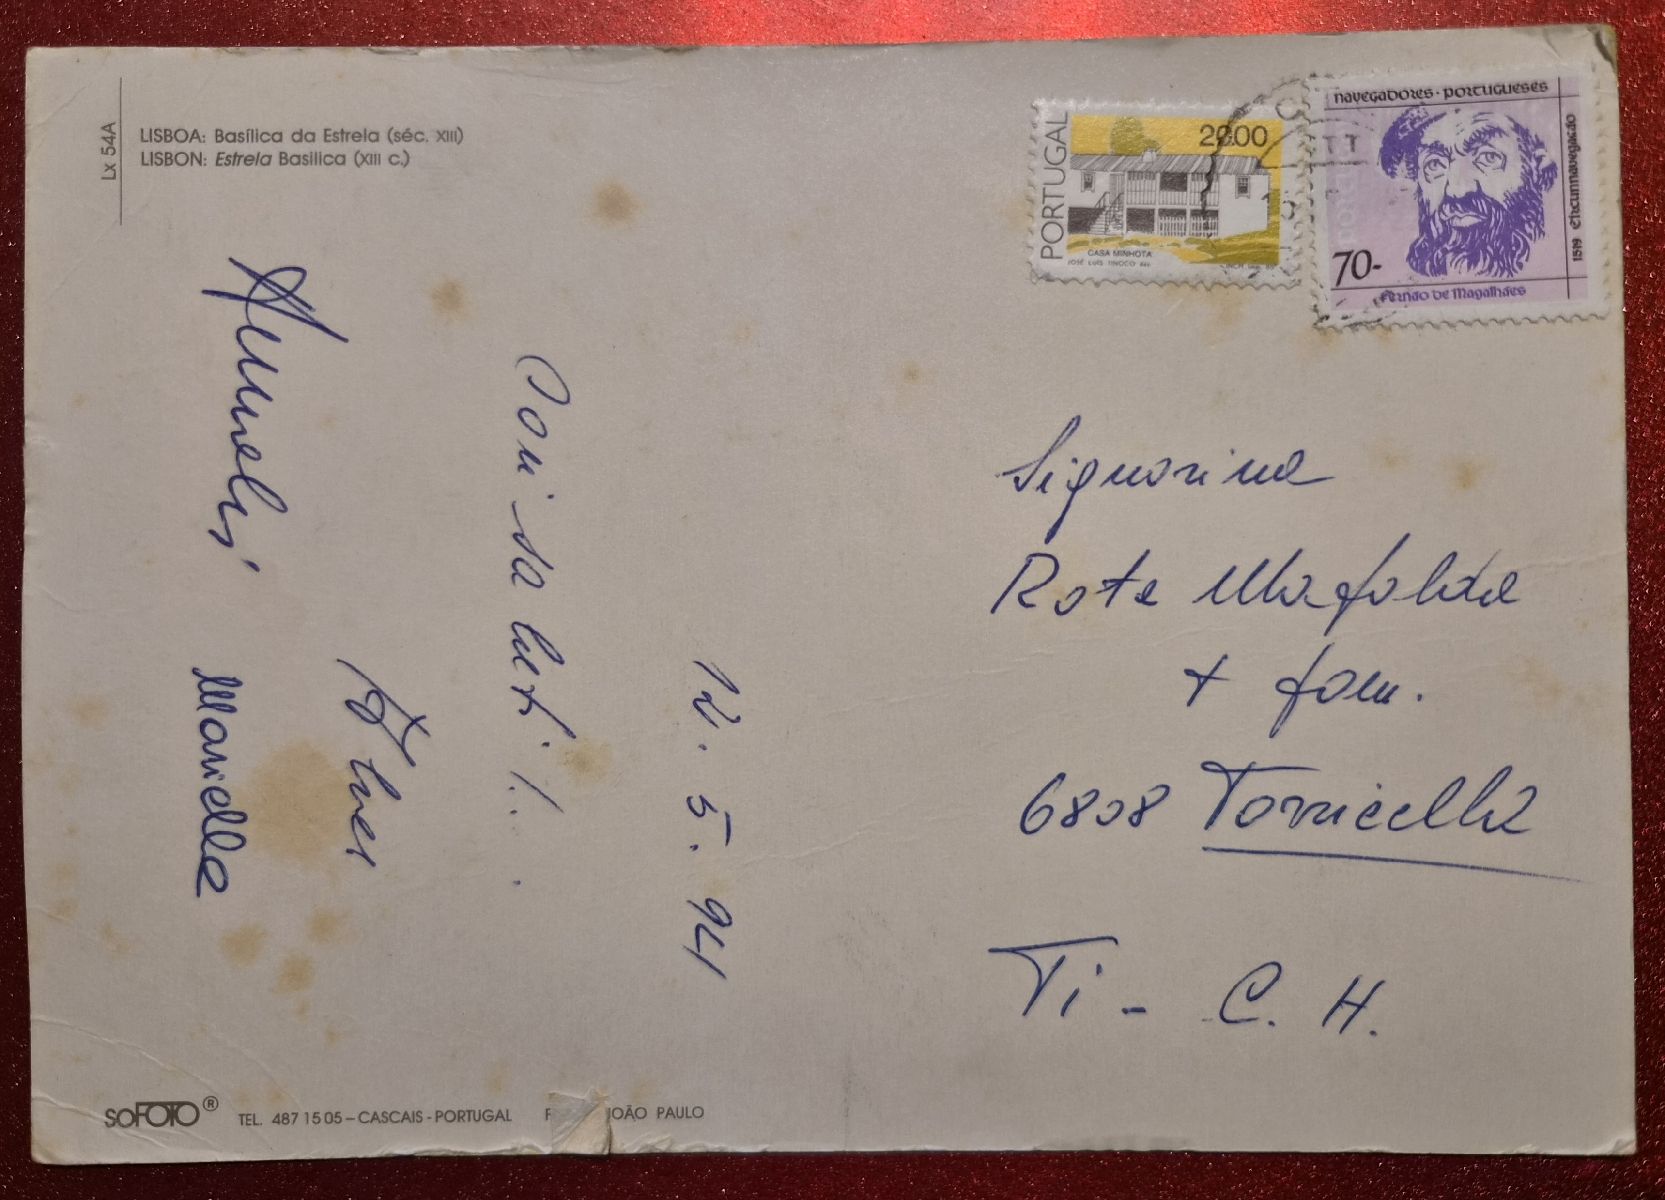 Lx 54A
LISBOA: Basílica da Estrela (séc. XIII)
LISBON: Estrela Basilica (XIII c.)
PORTUGAL
CASA MINHOTA
JOSÉ LUIS TINOCO
navegadores · portugueses
1519 Circumnavegação
70-
Fernão de Magalhães
12. 5. 94
Cari saluti!..
Mariella
Signorina
Rota Mafalda
+ fam.
6808 Torricella
Ti - C. H.
SOFOTO®
TEL. 487 15 05 – CASCAIS - PORTUGAL
JOÃO PAULO